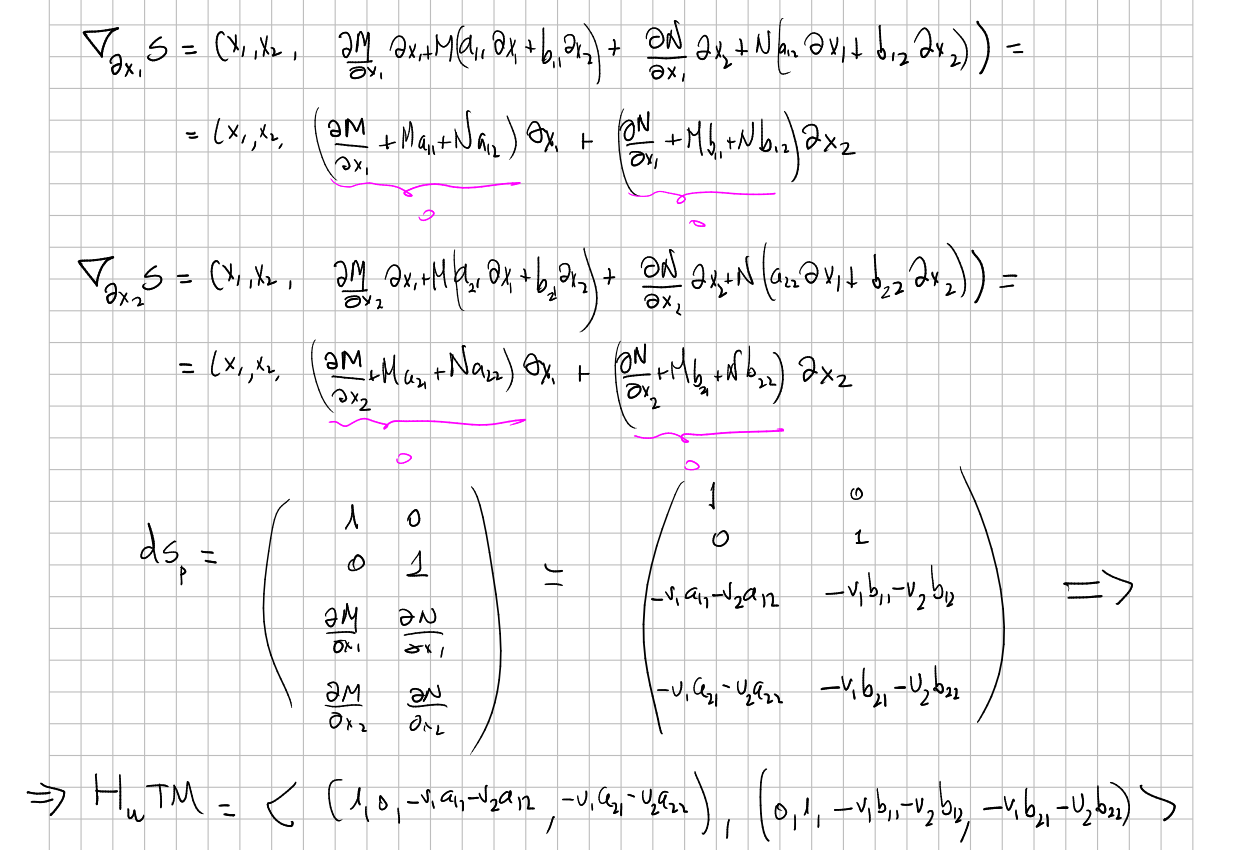 ∇_{∂x₁} S = (x₁, x₂, ∂M/∂x₁ ∂x₁ + M(a₁₁ ∂x₁ + b₁₁ ∂x₂) + ∂N/∂x₁ ∂x₂ + N(a₁₂ ∂x₁ + b₁₂ ∂x₂)) =
= (x₁, x₂, (∂M/∂x₁ + Ma₁₁ + Na₁₂) ∂x₁ + (∂N/∂x₁ + Mb₁₁ + Nb₁₂) ∂x₂
0 0
∇_{∂x₂} S = (x₁, x₂, ∂M/∂x₂ ∂x₁ + M(a₂₁ ∂x₁ + b₂₁ ∂x₂) + ∂N/∂x₂ ∂x₂ + N(a₂₂ ∂x₁ + b₂₂ ∂x₂)) =
= (x₁, x₂, (∂M/∂x₂ + Ma₂₁ + Na₂₂) ∂x₁ + (∂N/∂x₂ + Mb₂₁ + Nb₂₂) ∂x₂
0 0
dS_p = ( 1 0 ; 0 1 ; ∂M/∂x₁ ∂N/∂x₁ ; ∂M/∂x₂ ∂N/∂x₂ ) = ( 1 0 ; 0 1 ; -v₁a₁₁-v₂a₁₂ -v₁b₁₁-v₂b₁₂ ; -v₁a₂₁-v₂a₂₂ -v₁b₂₁-v₂b₂₂ ) ⟹
⟹ H_u TM = < (1, 0, -v₁a₁₁-v₂a₁₂, -v₁a₂₁-v₂a₂₂), (0, 1, -v₁b₁₁-v₂b₁₂, -v₁b₂₁-v₂b₂₂) >